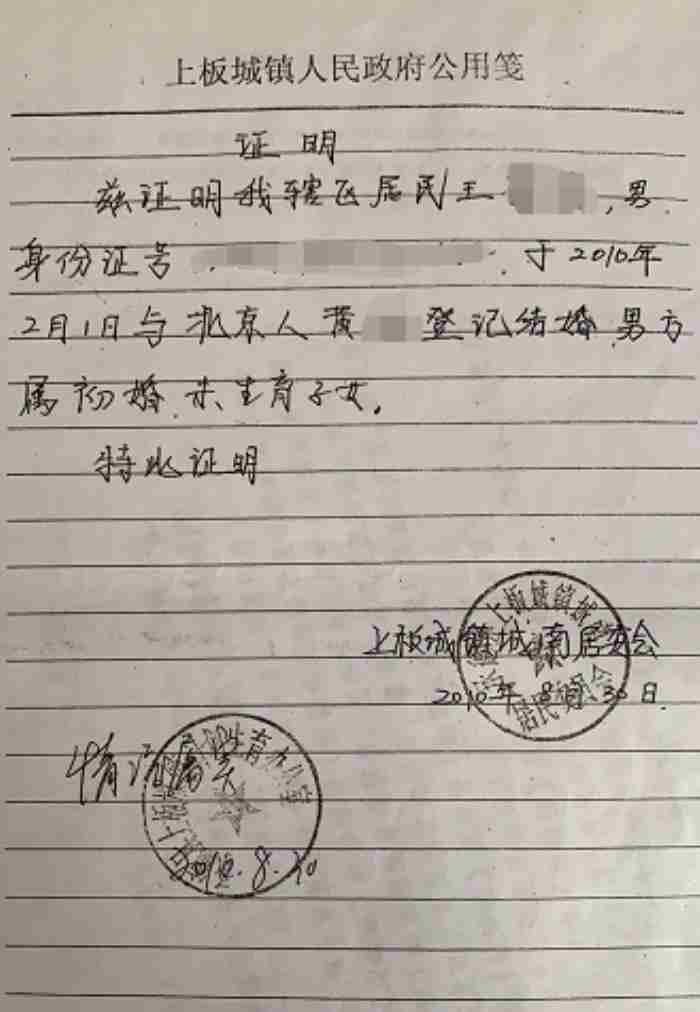 上板城镇人民政府公用笺
证明
兹证明我辖区居民王 ,男.
身份证号 . 于2010年
2月1日与北京人黄 登记结婚.男方
属初婚.未生育子女.
特此证明
上板城镇城南居委会
2010年8月30日.
情况属实
2010.8.30
上板城镇城
居民委员会
生育办公室